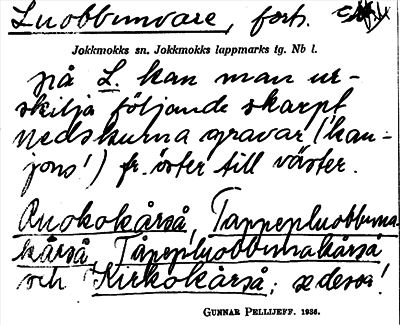 Luobbunvare, forts.
Jokkmokks sn. Jokkmokks lappmarks tg. Nb l.
på L. kan man ur-
skilja följande skarpt
nedskurna gravar (kan-
jons!) fr. öster till väster.
Ruokokårså, Tappepluobbuma-
kårså, Tåpepluobbumakårså
och Kirkokårså; se dessa!
GUNNAR PELLIJEFF. 1936.